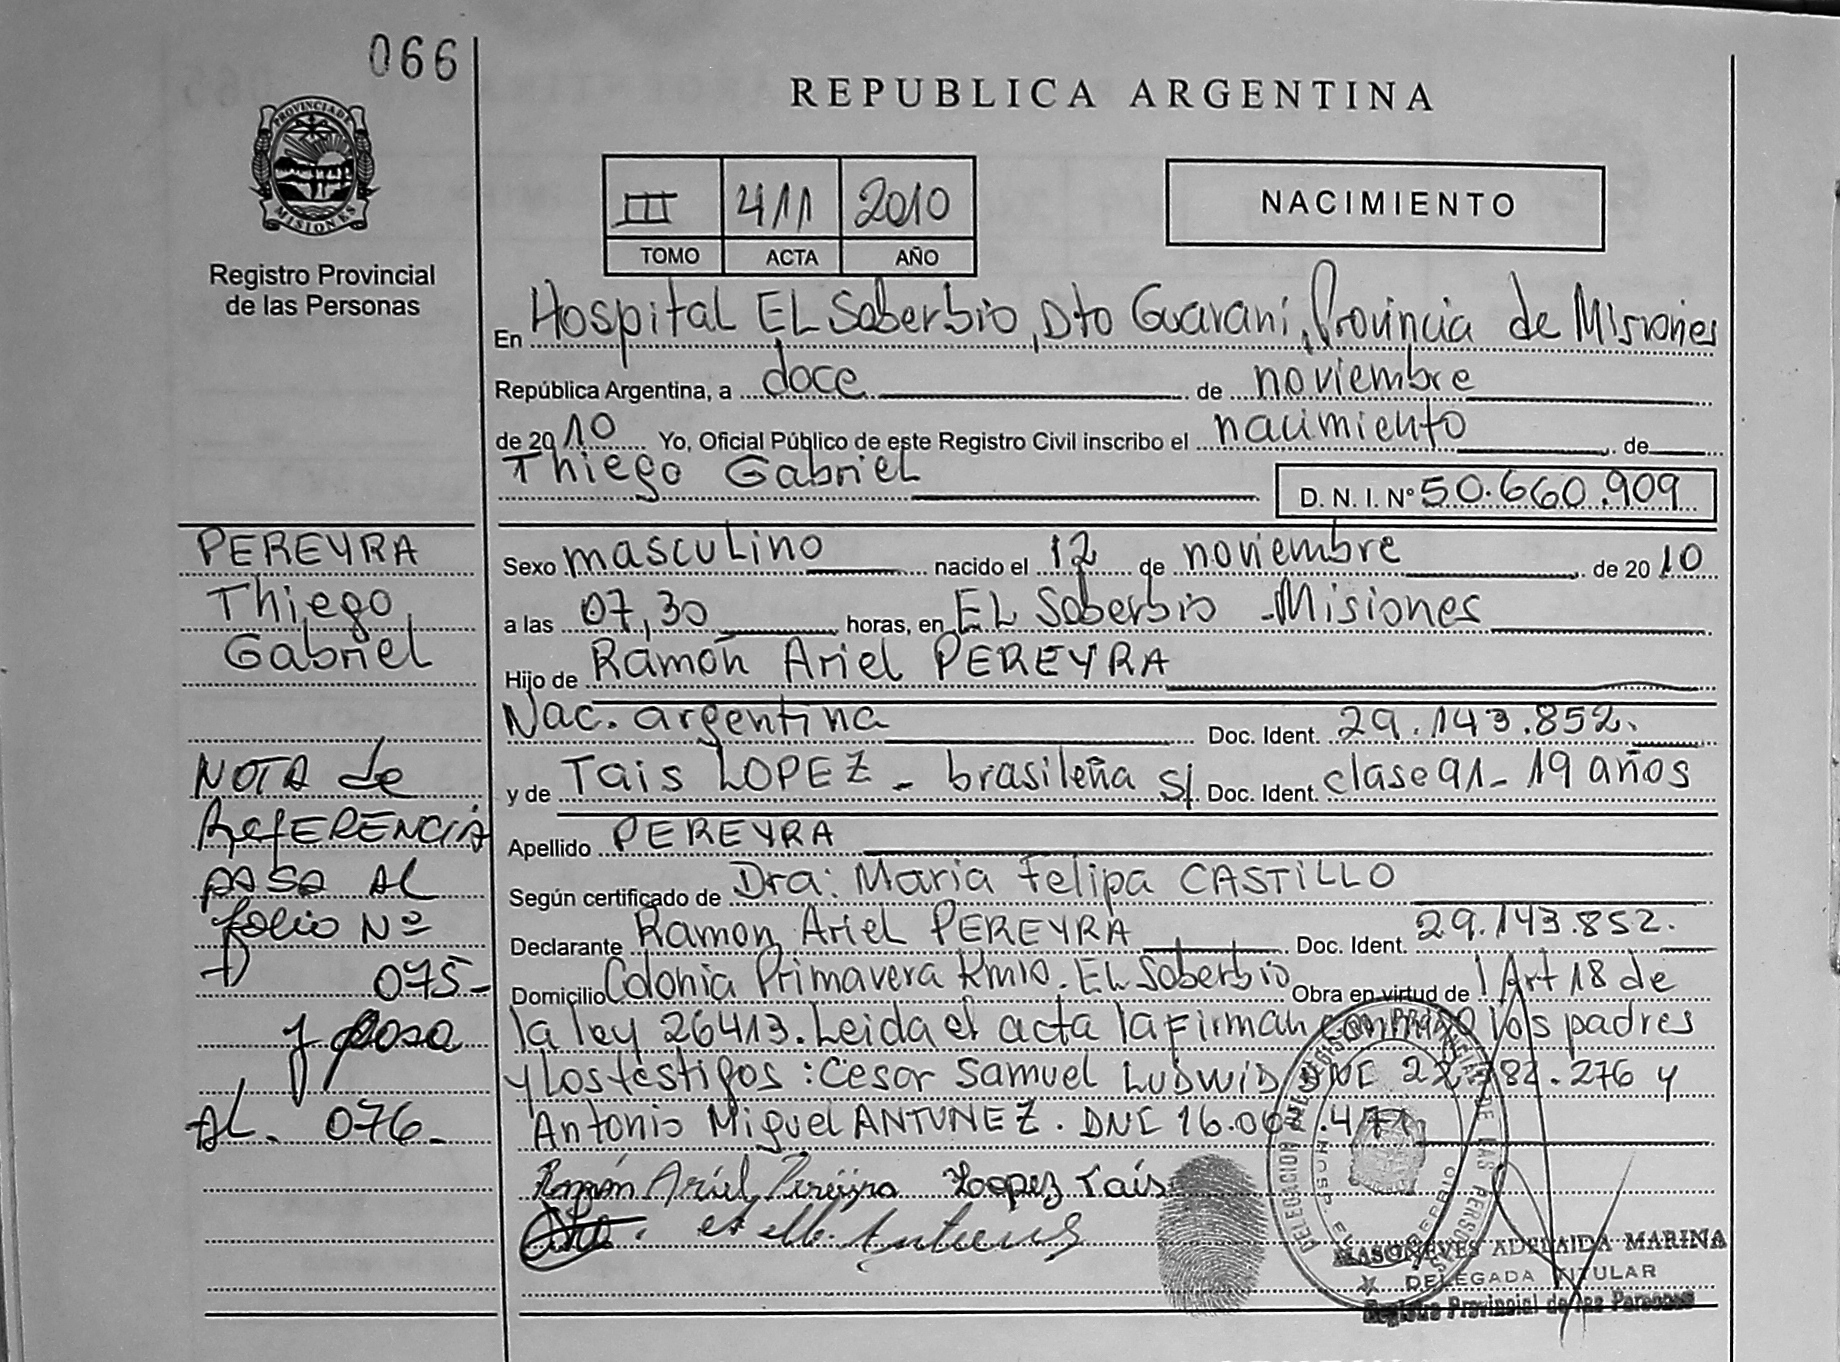 066
PROVINCIA DE
MISIONES
Registro Provincial
de las Personas
REPUBLICA ARGENTINA
III 411 2010
TOMO ACTA AÑO
NACIMIENTO
En Hospital EL Soberbio, Dto Guaraní, Provincia de Misiones
República Argentina, a doce de noviembre
de 2010 Yo, Oficial Público de este Registro Civil inscribo el nacimiento de
Thiego Gabriel
D. N. I. Nº 50.660.909
PEREYRA
Thiego
Gabriel
Sexo masculino nacido el 12 de noviembre de 2010
a las 07,30 horas, en EL Soberbio - Misiones
Hijo de Ramón Ariel PEREYRA
Nac. argentina Doc. Ident. 29.143.852.
y de Tais LOPEZ - brasileña s/ Doc. Ident. clase 91 - 19 años
Apellido PEREYRA
Según certificado de Dra: Maria Felipa CASTILLO
Declarante Ramon Ariel PEREYRA Doc. Ident. 29.143.852.
Domicilio Colonia Primavera Km10. EL Soberbio Obra en virtud de l Art 18 de
la ley 26413. Leida el acta la firman conmigo los padres
y los testigos: Cesar Samuel LUDWID DNI 276 y
Antonio Miguel ANTUNEZ. DNI 16.
Ramón Ariel Pereyra Loopez Taís
NOTA de
REFERENCIA
pasa AL
folio Nº
075-
y pasa
AL. 076-
DELEGACION REGISTRO PROVINCIAL DE LAS PERSONAS
EL SOBERBIO
MASONEVES ADELAIDA MARINA
DELEGADA TITULAR
Registro Provincial de las Personas